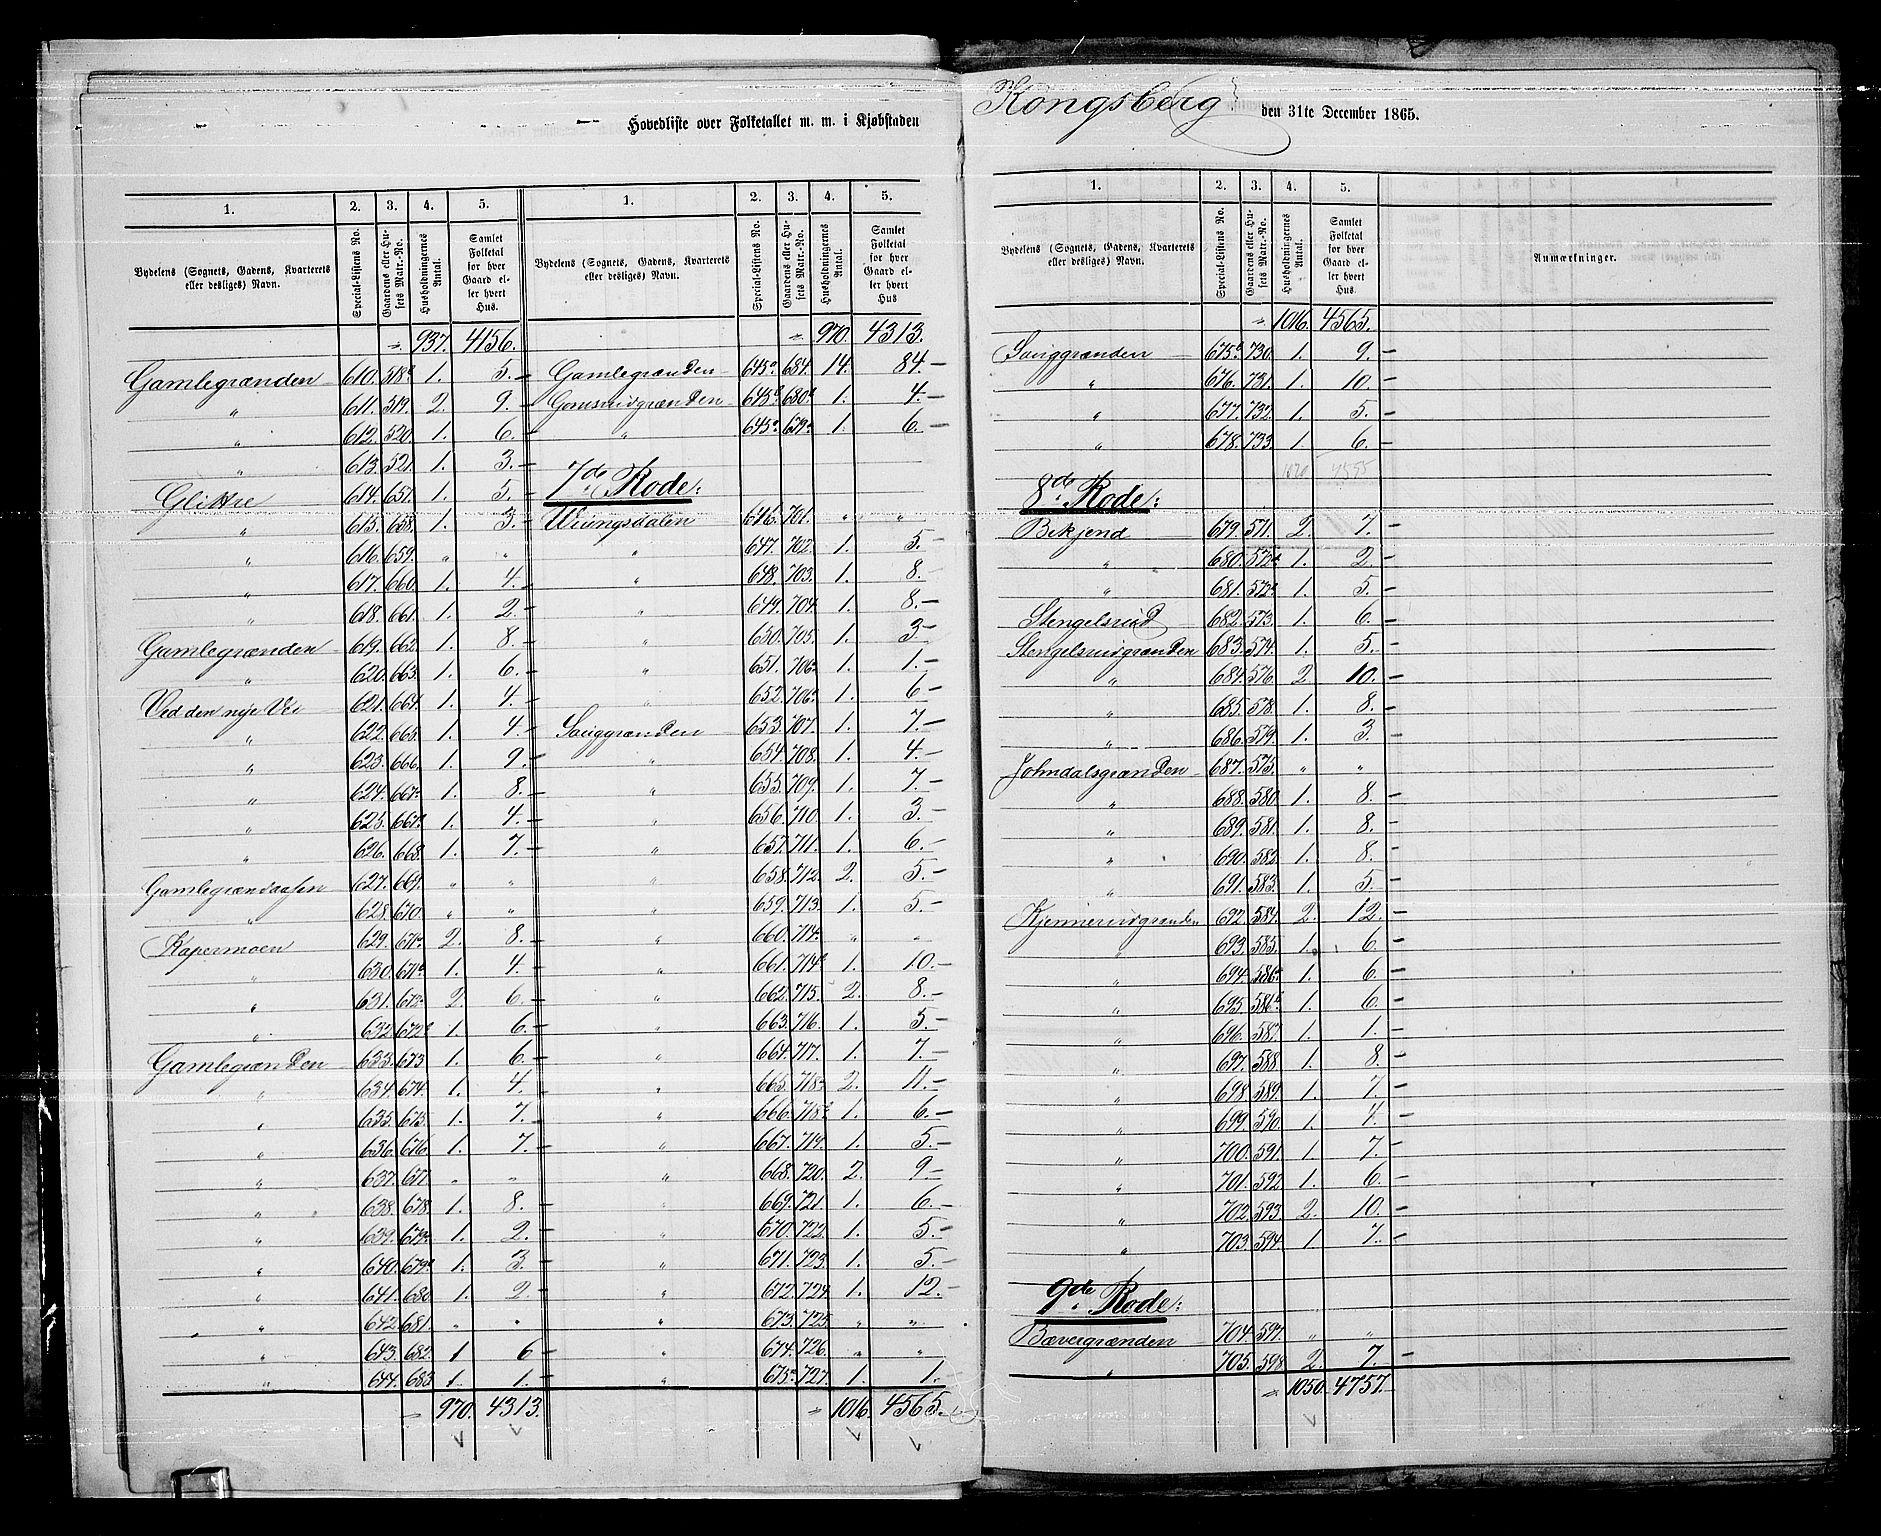 Hovedliste over Folketallet m. m. i Kjøbstaden Kongsberg den 31te December 1865.
1. 2. 3. 4. 5. 1. 2. 3. 4. 5.
Bydelens (Sognets, Gadens, Kvarterets eller desliges) Navn. Special-Listens No. Gaardens eller Husets Matr.-No. Husholdningernes Antal. Samlet Folketal for hver Gaard eller hvert Hus.
" 937. 4156.
Gamlegrænden 610. 518b 1. 5. –
" 611. 519. 2. 9. –
" 612. 520. 1. 6. –
" 613. 521. 1. 3. –
Glittre 614. 657. 1. 5. –
" 615. 658. 1. 3. –
" 616. 659. " "
" 617. 660. 1. 4. –
" 618. 661. 1. 2. –
Gamlegrænden 619. 662. 1. 8. –
" 620. 663. 1. 6. –
Ved den nye Vei 621. 664. 1. 4. –
" 622. 665. 1. 4. –
" 623. 666. 1. 9. –
" 624. 667a 1. 8. –
" 625. 667b 1. 4. –
" 626. 668. 1. 7. –
Gamlegrændaasen 627. 669. " "
" 628. 670. " "
Kapermoen 629. 671a 2. 8. –
" 630. 671b 1. 4. –
" 631. 672a 2. 6. –
" 632. 672b 1. 6. –
Gamlegrænden 633. 673 1. 6. –
" 634. 674. 1. 4. –
" 635. 675. 1. 7. –
" 636. 676 1. 7. –
" 637. 677. " "
" 638. 678. 1. 8. –
" 639. 679a 1. 2. –
" 640. 679b 1. 3. –
" 641. 680 1. 2. –
" 642. 681. " "
" 643. 682. 1 6 –
" 644. 683. 1. 1. –
" 970. 4313.
Bydelens (Sognets, Gadens, Kvarterets eller desliges) Navn. Special-Listens No. Gaardens eller Husets Matr.-No. Husholdningernes Antal. Samlet Folketal for hver Gaard eller hvert Hus
" 970. 4313.
Gamlegrænden 645a 684. 14. 84. –
Gomsrudgrænden 645b 680b 1. 4. –
" 645c 659a 1. 6. –
7de Rode:
Wiungsdalen 646. 701. " "
" 647. 702. 1. 5. –
" 648. 703. 1. 8. –
" 649. 704. 1. 8. –
" 650. 705. 1. 3. –
" 651. 706a 1. 1. –
" 652. 706b 1. 6. –
Sauggrænden 653. 707. 1. 7. –
" 654. 708. 1. 4. –
" 655. 709. 1. 7. –
" 656. 710. 1. 3. –
" 657. 711. 1. 6. –
" 658. 712. 2. 5. –
" 659. 713. 1. 5. –
" 660. 714a " "
" 661. 714b 1. 10. –
" 662. 715. 2. 8. –
" 663. 716. 1. 5. –
" 664. 717. 1. 7. –
" 665. 718a 2. 11. –
" 666. 718b 1. 6. –
" 667. 719. 1. 5. –
" 668. 720. 2. 9 –
" 669. 721. 1. 6. –
" 670. 722. 1. 5. –
" 671. 723. 1. 5. –
" 672. 724. 1. 12. –
" 673. 725. " "
" 674. 726. " "
" 675a 727. 1. 1.
" 1016. 4565.
1. 2. 3. 4. 5.
Bydelens (Sognets, Gadens, Kvarterets eller desliges) Navn. Special-Listens No. Gaardens eller Husets Matr.-No. Husholdningernes Antal. Samlet Folketal for hver Gaard eller hvert Hus. Anmærkninger.
" 1016. 4565.
Sauggrænden 675b 730. 1. 9. –
" 676. 731. 1. 10. –
" 677. 732. 1. 5. –
" 678. 733. 1. 6. –
1020 4595
8de Rode:
Bekjend 679. 571. 2. 7. –
" 680. 572a 1. 2. –
" 681. 572b 1. 5. –
Stengelsrud 682. 573. 1. 6. –
Stengelsrudgrænden 683. 574. 1. 5. –
" 684. 576. 2 10. –
" 685. 578. 1. 8. –
" 686. 579. 1. 3. –
Johndalsgrænden 687. 575. " "
" 688. 580. 1. 8. –
" 689. 581. 1. 8. –
" 690. 582. 1. 8. –
" 691. 583. 1. 5. –
Kjennerudgrænden 692. 584. 2. 12. –
" 693. 585. 1. 6. –
" 694. 586a 1. 6. –
" 695. 586b 1. 6. –
" 696. 587. 1. 1. –
" 697. 588 1. 8. –
" 698 589. 1. 7. –
" 699. 590. 1. 4. –
" 700. 591. 1 7. –
" 701. 592 1. 6. –
" 702. 593. 2. 10. –
" 703. 594. 1 7. –
9de Rode:
Bævergrænden 704. 597. " "
" 705. 598. 2. 7. –
" 1050. 4757.